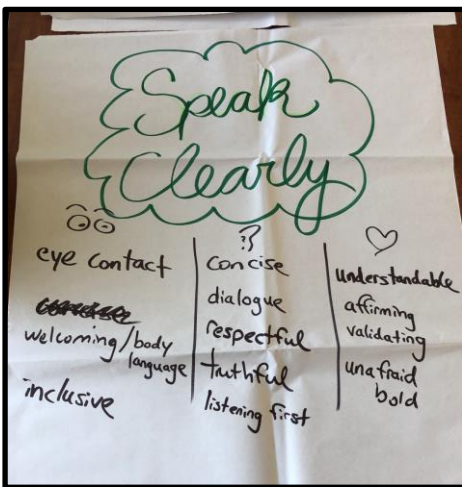 Speak
Clearly
eye contact
welcoming/body
language
inclusive
concise
dialogue
respectful
truthful
listening first
understandable
affirming
validating
unafraid
bold